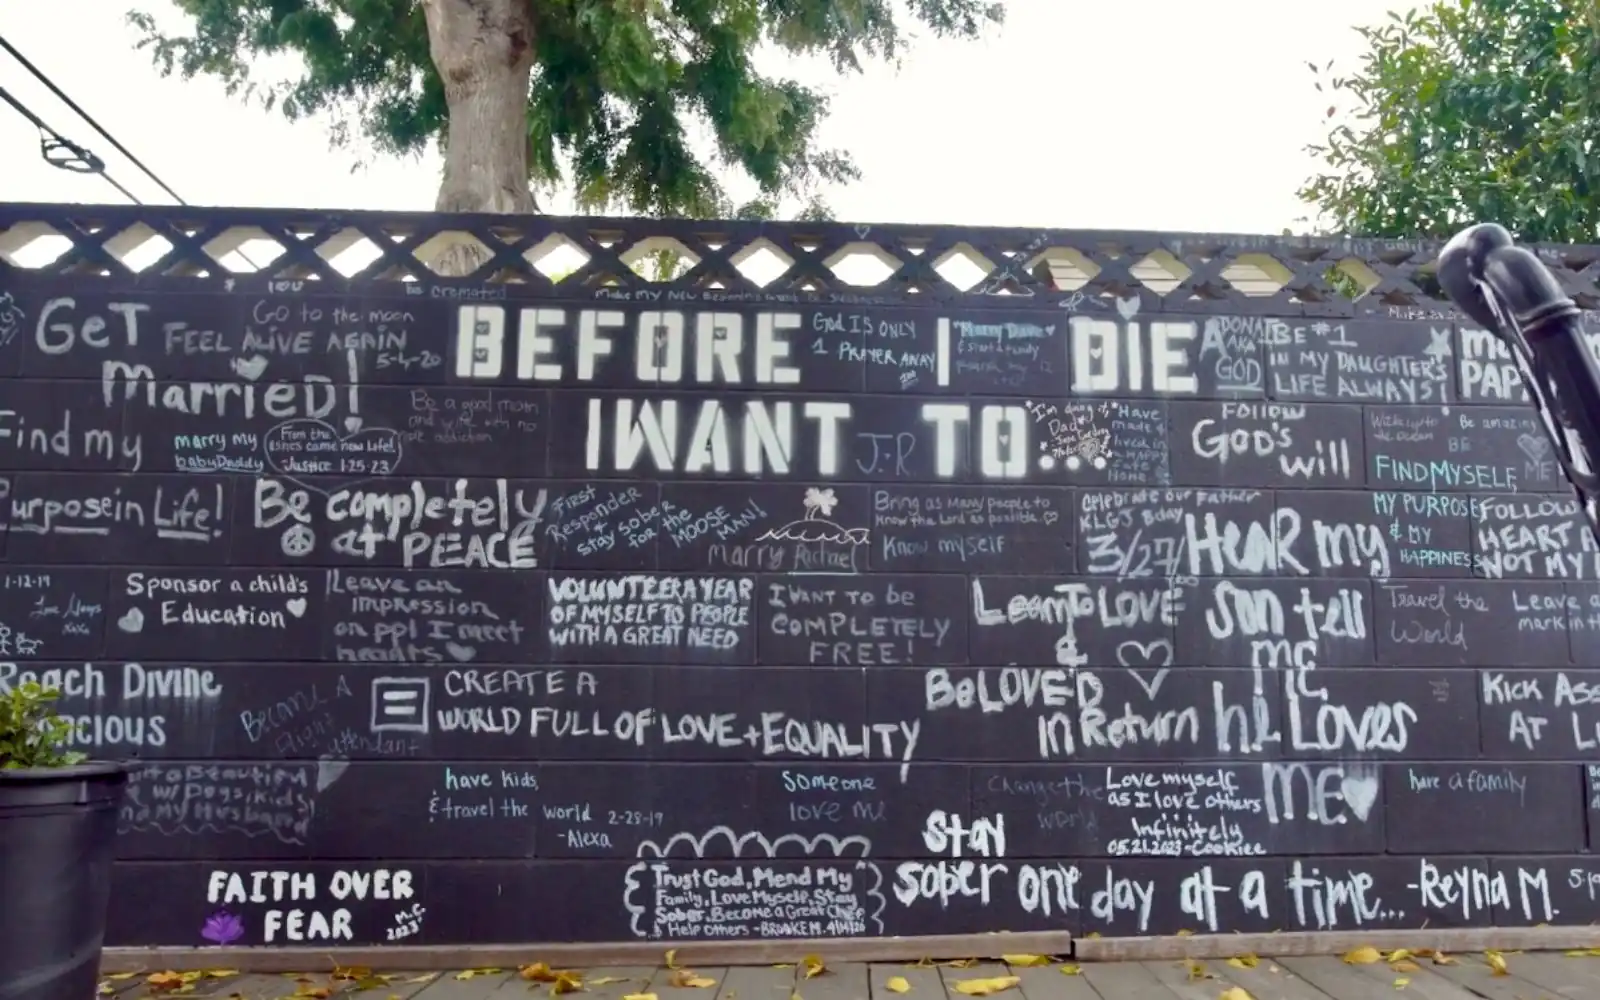 be cremated
GeT
Married!
Go to the moon
FEEL ALIVE AGAIN
5-4-20
BEFORE I DIE
I WANT TO...
God IS ONLY
1 PRAYER AWAY
Marry Dave
ADONAI
AKA
GOD
BE #1
IN MY DAUGHTER'S
LIFE ALWAYS!
Find my
Purpose in Life!
marry my
babyDaddy
From the
ashes came new Life!
Justice 1-25-23
Be a good mom
and wife with no
addiction
J.R
I'm doing it,
Dad
Have
made &
lived in
a HAPPY
Safe
Home
FOLLOW
GOD'S
will
Be amazing
BE
ME
FIND MYSELF,
MY PURPOSE
& MY
HAPPINESS
FOLLOW
HEART
NOT MY
Be completely
at PEACE
First
Responder
stay sober
for the
MOOSE
MAN!
marry Rachael
Bring as Many people to
know the Lord as possible.
Know myself
Celebrate our Father
KLGJ Bday
3/27/
HeaR my
Son tell
me
he Loves
ME
1-12-19
Love Always
Sponsor a child's
Education
Leave an
impression
on ppl I meet
hearts
VOLUNTEER A YEAR
OF MYSELF TO PEOPLE
WITH A GREAT NEED
I WANT TO be
COMPLETELY
FREE!
Learn To LOVE
&
BeLOVE'D
in Return
Travel the
World
Leave a
mark in th
Reach Divine
Become A
Flight
attendant
CREATE A
WORLD FULL OF LOVE + EQUALITY
KICK ASS
AT L
a Beautiful
w/ Dogs, kids,
and My Husband
have kids,
& travel the world 2-28-19
-Alexa
Someone
love me
Change the
world
Love myself
as I love others
Infinitely
05.21.2023-Cookiee
have a family
FAITH OVER
FEAR
M.C.
2023
Trust God, Mend My
Family, Love Myself, Stay
Sober, Become a Great Chef
& Help Others -BROOKE M.
Stay
sober one day at a time... -Reyna M.